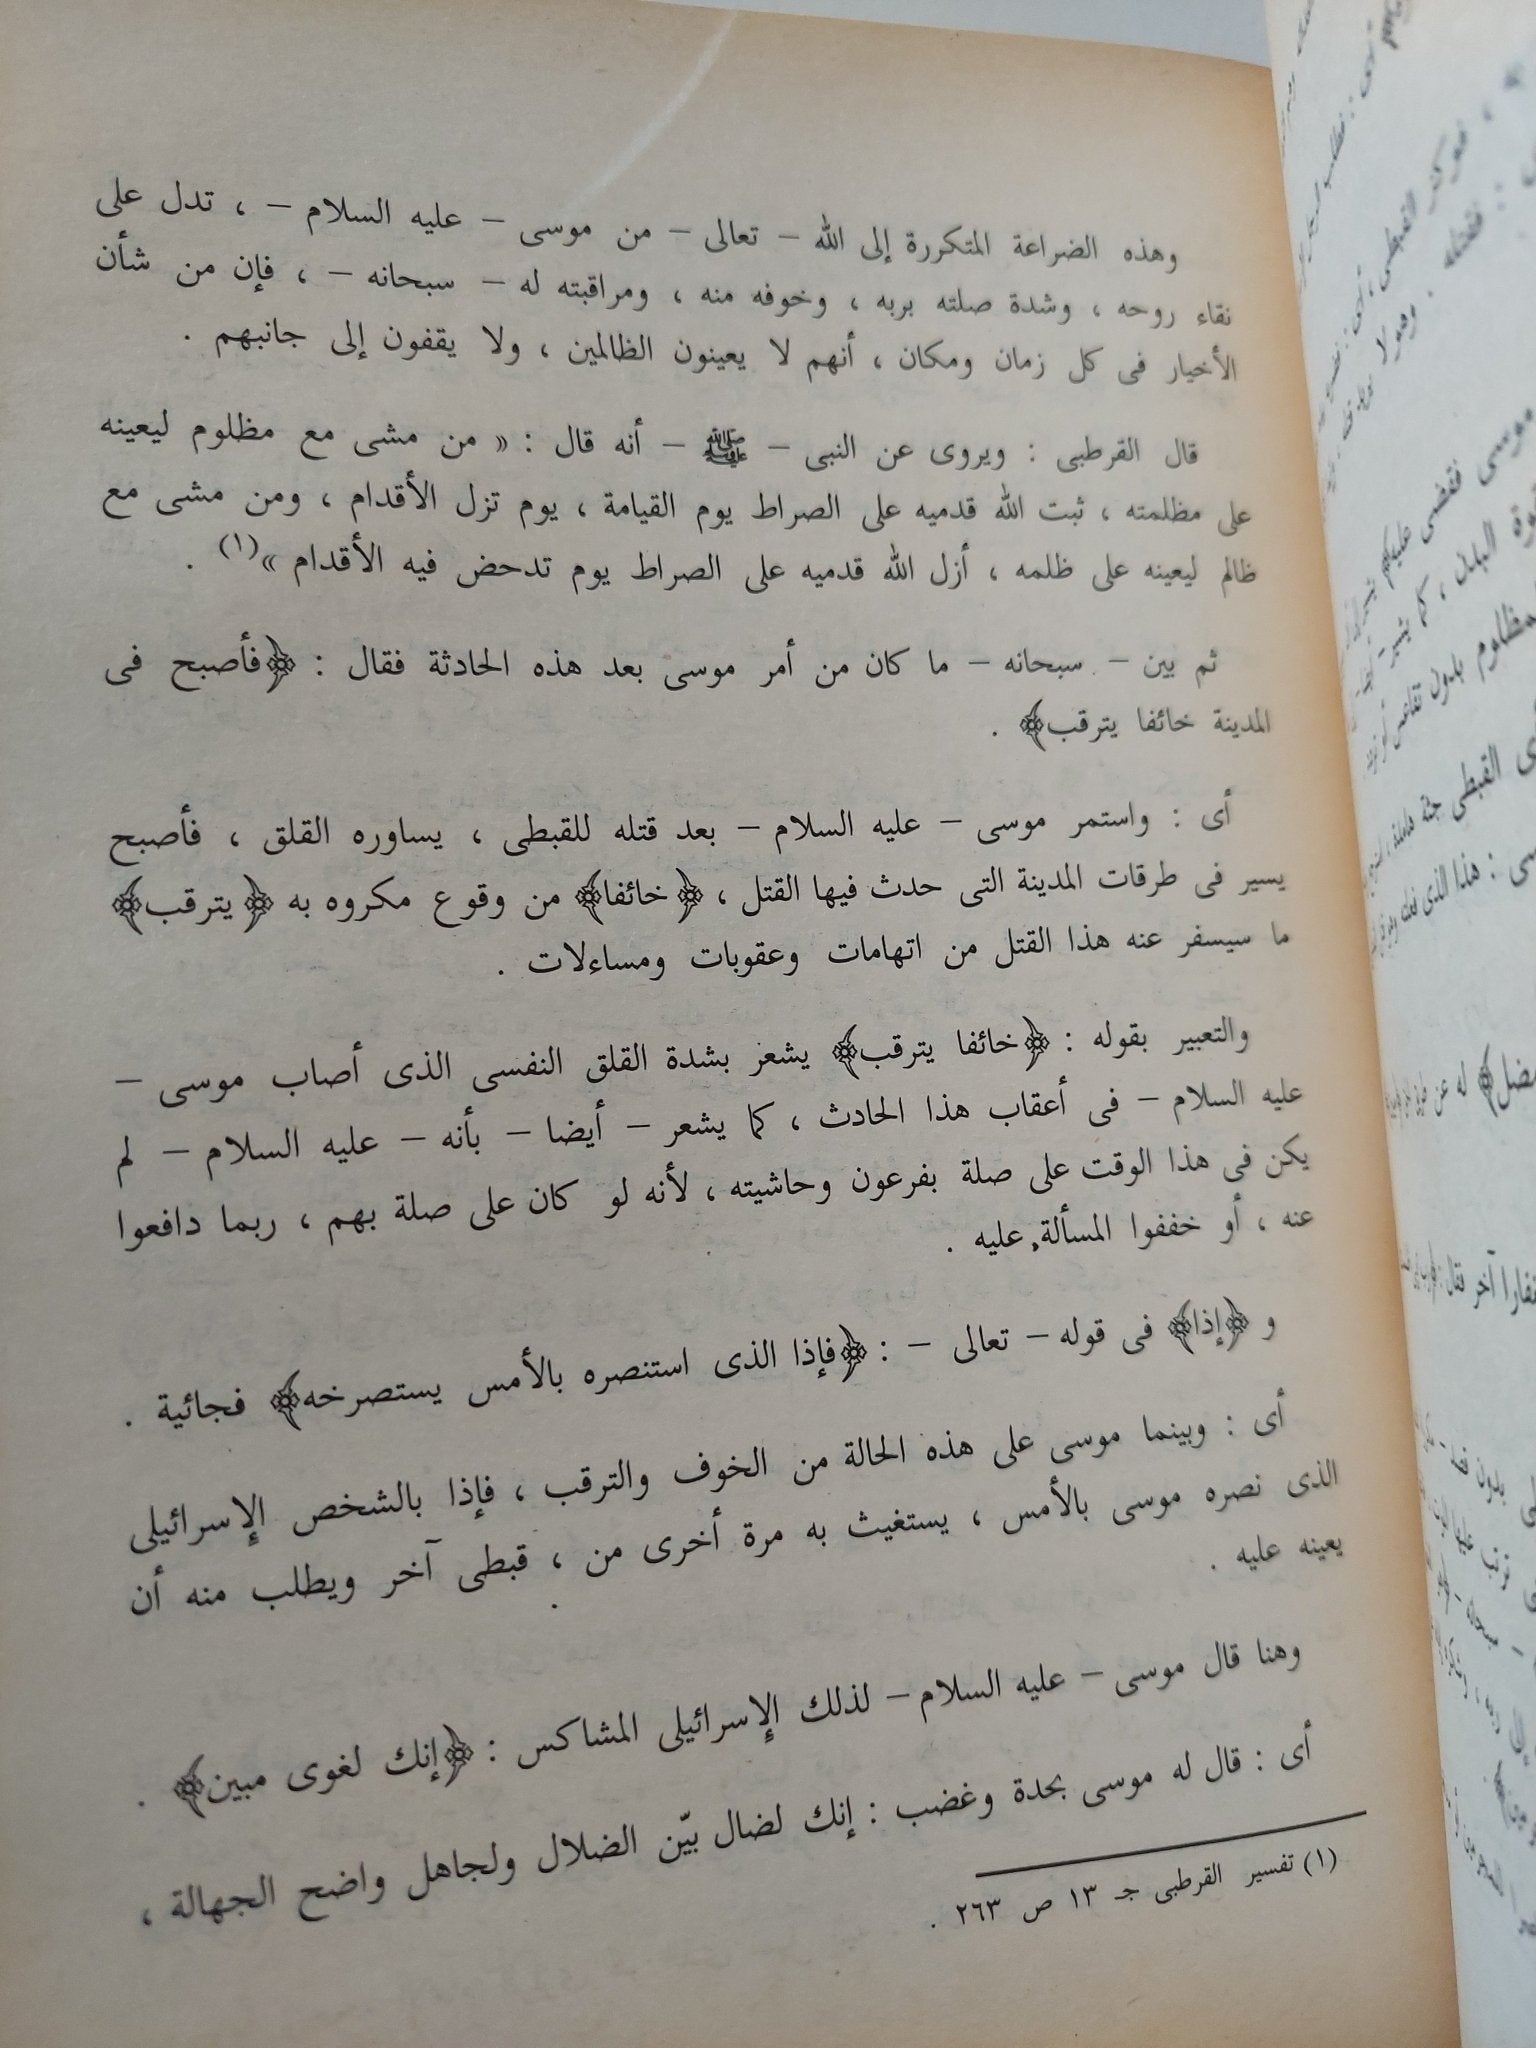 وهذه الضراعة المتكررة إلى الله – تعالى – من موسى – عليه السلام – ، تدل على
نقاء روحه ، وشدة صلته بربه ، وخوفه منه ، ومراقبته له – سبحانه – ، فإن من شأن
الأخيار فى كل زمان ومكان ، أنهم لا يعينون الظالمين ، ولا يقفون إلى جانبهم .
قال القرطبى : ويروى عن النبى – ﷺ – أنه قال : « من مشى مع مظلوم ليعينه
على مظلمته ، ثبت الله قدميه على الصراط يوم القيامة ، يوم تزل الأقدام ، ومن مشى مع
ظالم ليعينه على ظلمه ، أزل الله قدميه على الصراط يوم تدحض فيه الأقدام »(١) .
ثم بين – سبحانه – ما كان من أمر موسى بعد هذه الحادثة فقال : ﴿فأصبح فى
المدينة خائفا يترقب﴾ .
أى : واستمر موسى – عليه السلام – بعد قتله للقبطى ، يساوره القلق ، فأصبح
يسير فى طرقات المدينة التى حدث فيها القتل ، ﴿خائفا﴾ من وقوع مكروه به ﴿يترقب﴾
ما سيسفر عنه هذا القتل من اتهامات وعقوبات ومساءلات .
والتعبير بقوله : ﴿خائفا يترقب﴾ يشعر بشدة القلق النفسى الذى أصاب موسى –
عليه السلام – فى أعقاب هذا الحادث ، كما يشعر – أيضا – بأنه – عليه السلام – لم
يكن فى هذا الوقت على صلة بفرعون وحاشيته ، لأنه لو كان على صلة بهم ، ربما دافعوا
عنه ، أو خففوا المسألة عليه .
و ﴿إذا﴾ فى قوله – تعالى – : ﴿فإذا الذى استنصره بالأمس يستصرخه﴾ فجائية .
أى : وبينما موسى على هذه الحالة من الخوف والترقب ، فإذا بالشخص الإسرائيلى
الذى نصره موسى بالأمس ، يستغيث به مرة أخرى من ، قبطى آخر ويطلب منه أن
يعينه عليه .
وهنا قال موسى – عليه السلام – لذلك الإسرائيلى المشاكس : ﴿إنك لغوى مبين﴾ .
أى : قال له موسى بحدة وغضب : إنك لضال بيّن الضلال ولجاهل واضح الجهالة ،
(١) تفسير القرطبى جـ ١٣ ص ٢٦٣ .